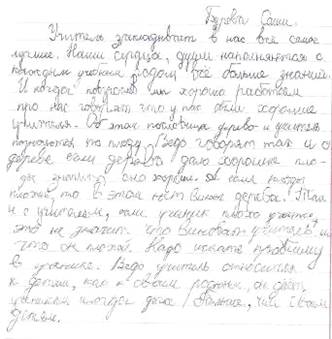 Буровка Саши.
Учитель закладывает в нас все самое
лучшее. Наши сердца, души наполняются с
каждым учебным годом всё больше знаний.
И когда повзрослев мы хорошо работаем
про нас говорят что у нас были хорошие
учителя. Об этом пословица дерево и учителя
познаются по плоду. Ведь говорят так и о
дереве если дерево дало хорошие пло-
ды значит оно хорошее. А если плоды
плохие то в этом нет вины дерева. Так
и с учителем, если ученик плохо учится,
это не значит что виноват учитель и
что он плохой. Надо искать причину
в ученике. Ведь учитель относится
к детям, как к своим родным, он даёт
ученикам иногда даже больше, чем своим
детям.